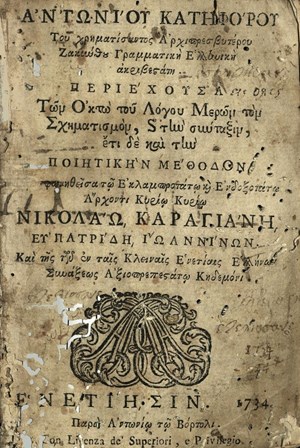 ἈΝΤΩΝΊΟΥ ΚΑΤΗΦΌΡΟΥ
Τοῦ χρηματίσαντος Ἀρχιπρεσβυτέρου
Ζακύνθου Γραμματικὴ Ἑλληνικὴ
ἀκριβεστάτη
ΠΕΡΙΈΧΟΥΣΑ
Τῶν Ὀκτὼ τοῦ Λόγου Μερῶν τὸν
Σχηματισμὸν, ϛ τὼ σύνταξιν,
ἔτι δὲ καὶ τὼ
ΠΟΙΗΤΙΚῊΝ ΜΈΘΟΔΟΝ
Ἐκλαμπροτάτῳ κ Ἐνδοξοτάτῳ
Ἄρχοντι Κυρίῳ Κυρίῳ
ΝΙΚΟΛΆΩ, ΚΑΡΑΓΙΑΝΗ,
ΕΥ̓ΠΑΤΡΊΔΗ, ἸΩΑΝΝΊΝΩΝ
Καὶ τῆς τῶν ἐν ταῖς Κλειναῖς Ἐνετίαις Ἑλλήνων
Συνάξεως Ἀξιοπρεπεστάτῳ Κηδεμόνι
1734
ἘΝΕΤΊΗΣΙΝ. 1734.
Παρὰ Ἀντωνίῳ τῷ Βόρτολι.
Con Licenza de' Superiori, e Privilegio.